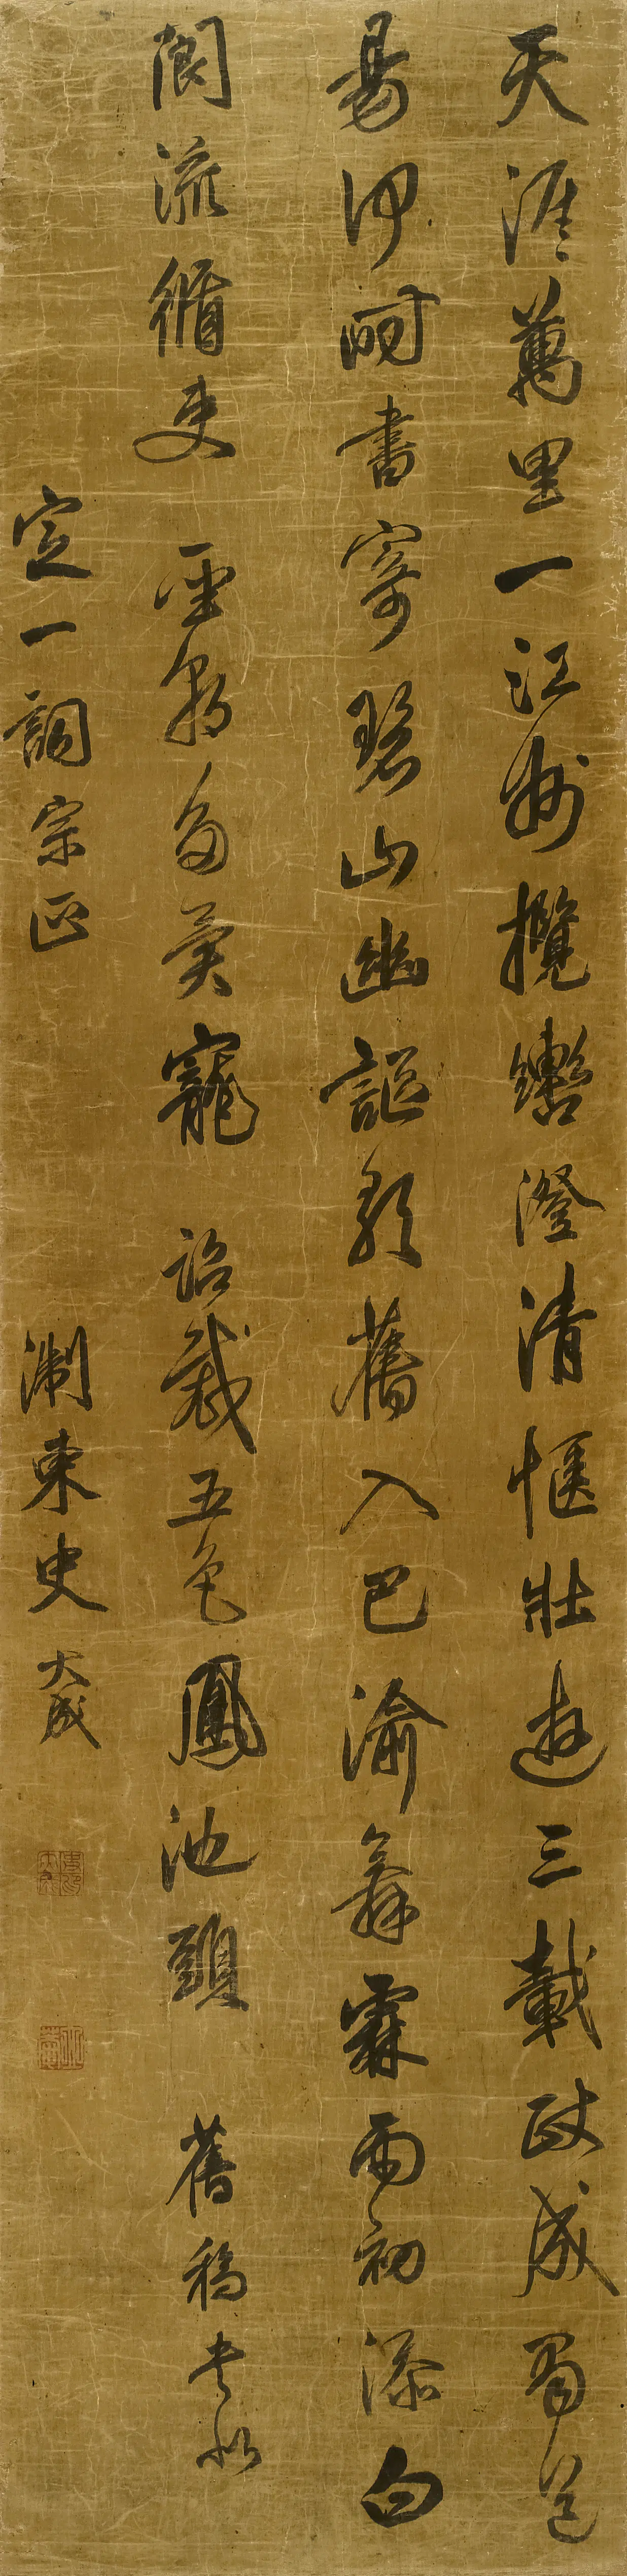 天涯萬里一江州攬轡澄清愜壯遊三載政成蜀道
易何時書寄碧山幽謳歌舊入巴渝舞霖雨初添白
閬流循吏聖朝多異寵詔裁五色鳳池頭舊稿書似
定一詞宗正淛東史大成